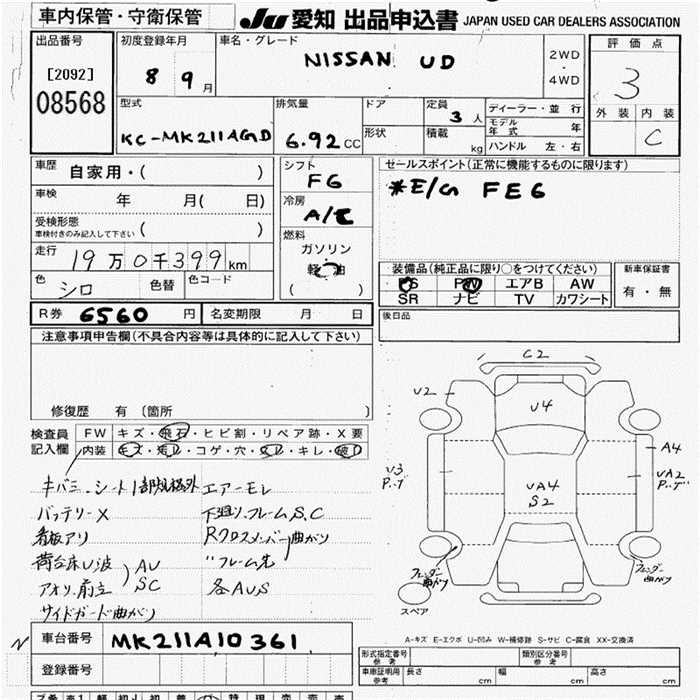 車内保管・守衛保管 JU 愛知 出品申込書 JAPAN USED CAR DEALERS ASSOCIATION
出品番号 初度登録年月 車名・グレード 評価点
[2092] 8 9月 NISSAN UD 2WD・4WD 3
08568 外装 内装
型式 排気量 ドア 定員 3人 ディーラー・並行 C
KC-MK211AGD 6.92CC 形状 積載 kg モデル年式 年
ハンドル 左・右
車歴 自家用・( ) シフト F6 セールスポイント(正常に機能するものに限ります)
車検 年 月( 日) 冷房 A/C *E/G FE6
受検形態 車検付きのみ記入して下さい ( ) 燃料 ガソリン
走行 19万0千399km 軽油 装備品(純正品に限り○をつけてください) 新車保証書
色 シロ 色替 色コード ( ) PS PW エアB AW 有・無
SR ナビ TV カワシート
R券 6560円 名変期限 月 日 後日品
注意事項申告欄(不具合内容等は具体的に記入して下さい)
修復歴 有 (箇所 )
検査員記入欄 FW キズ・飛石・ヒビ割・リペア跡・X要
内装 キズ・汚レ・コゲ・穴・スレ・キレ・破レ
キバミ・シート エアーモレ
バッテリーX 下廻り、フレームS,C
看板アリ Rクロスメンバー曲がり
荷台床U波 AU 〃フレーム先
アオリ、前立 SC 各AUS
サイドガード曲がり
C2
U2 U4
A4
U3 P.T UA4 S2 UA2 P.T
フェンダー曲がり フェンダー曲がり
スペア
A-キズ E-エクボ U-凹み W-補修跡 S-サビ C-腐食 XX-交換済
車台番号 MK211A10361
登録番号
形式指定番号 参考 類別区分番号 参考
車庫証明用 参考 長さ cm 幅 cm 高さ cm